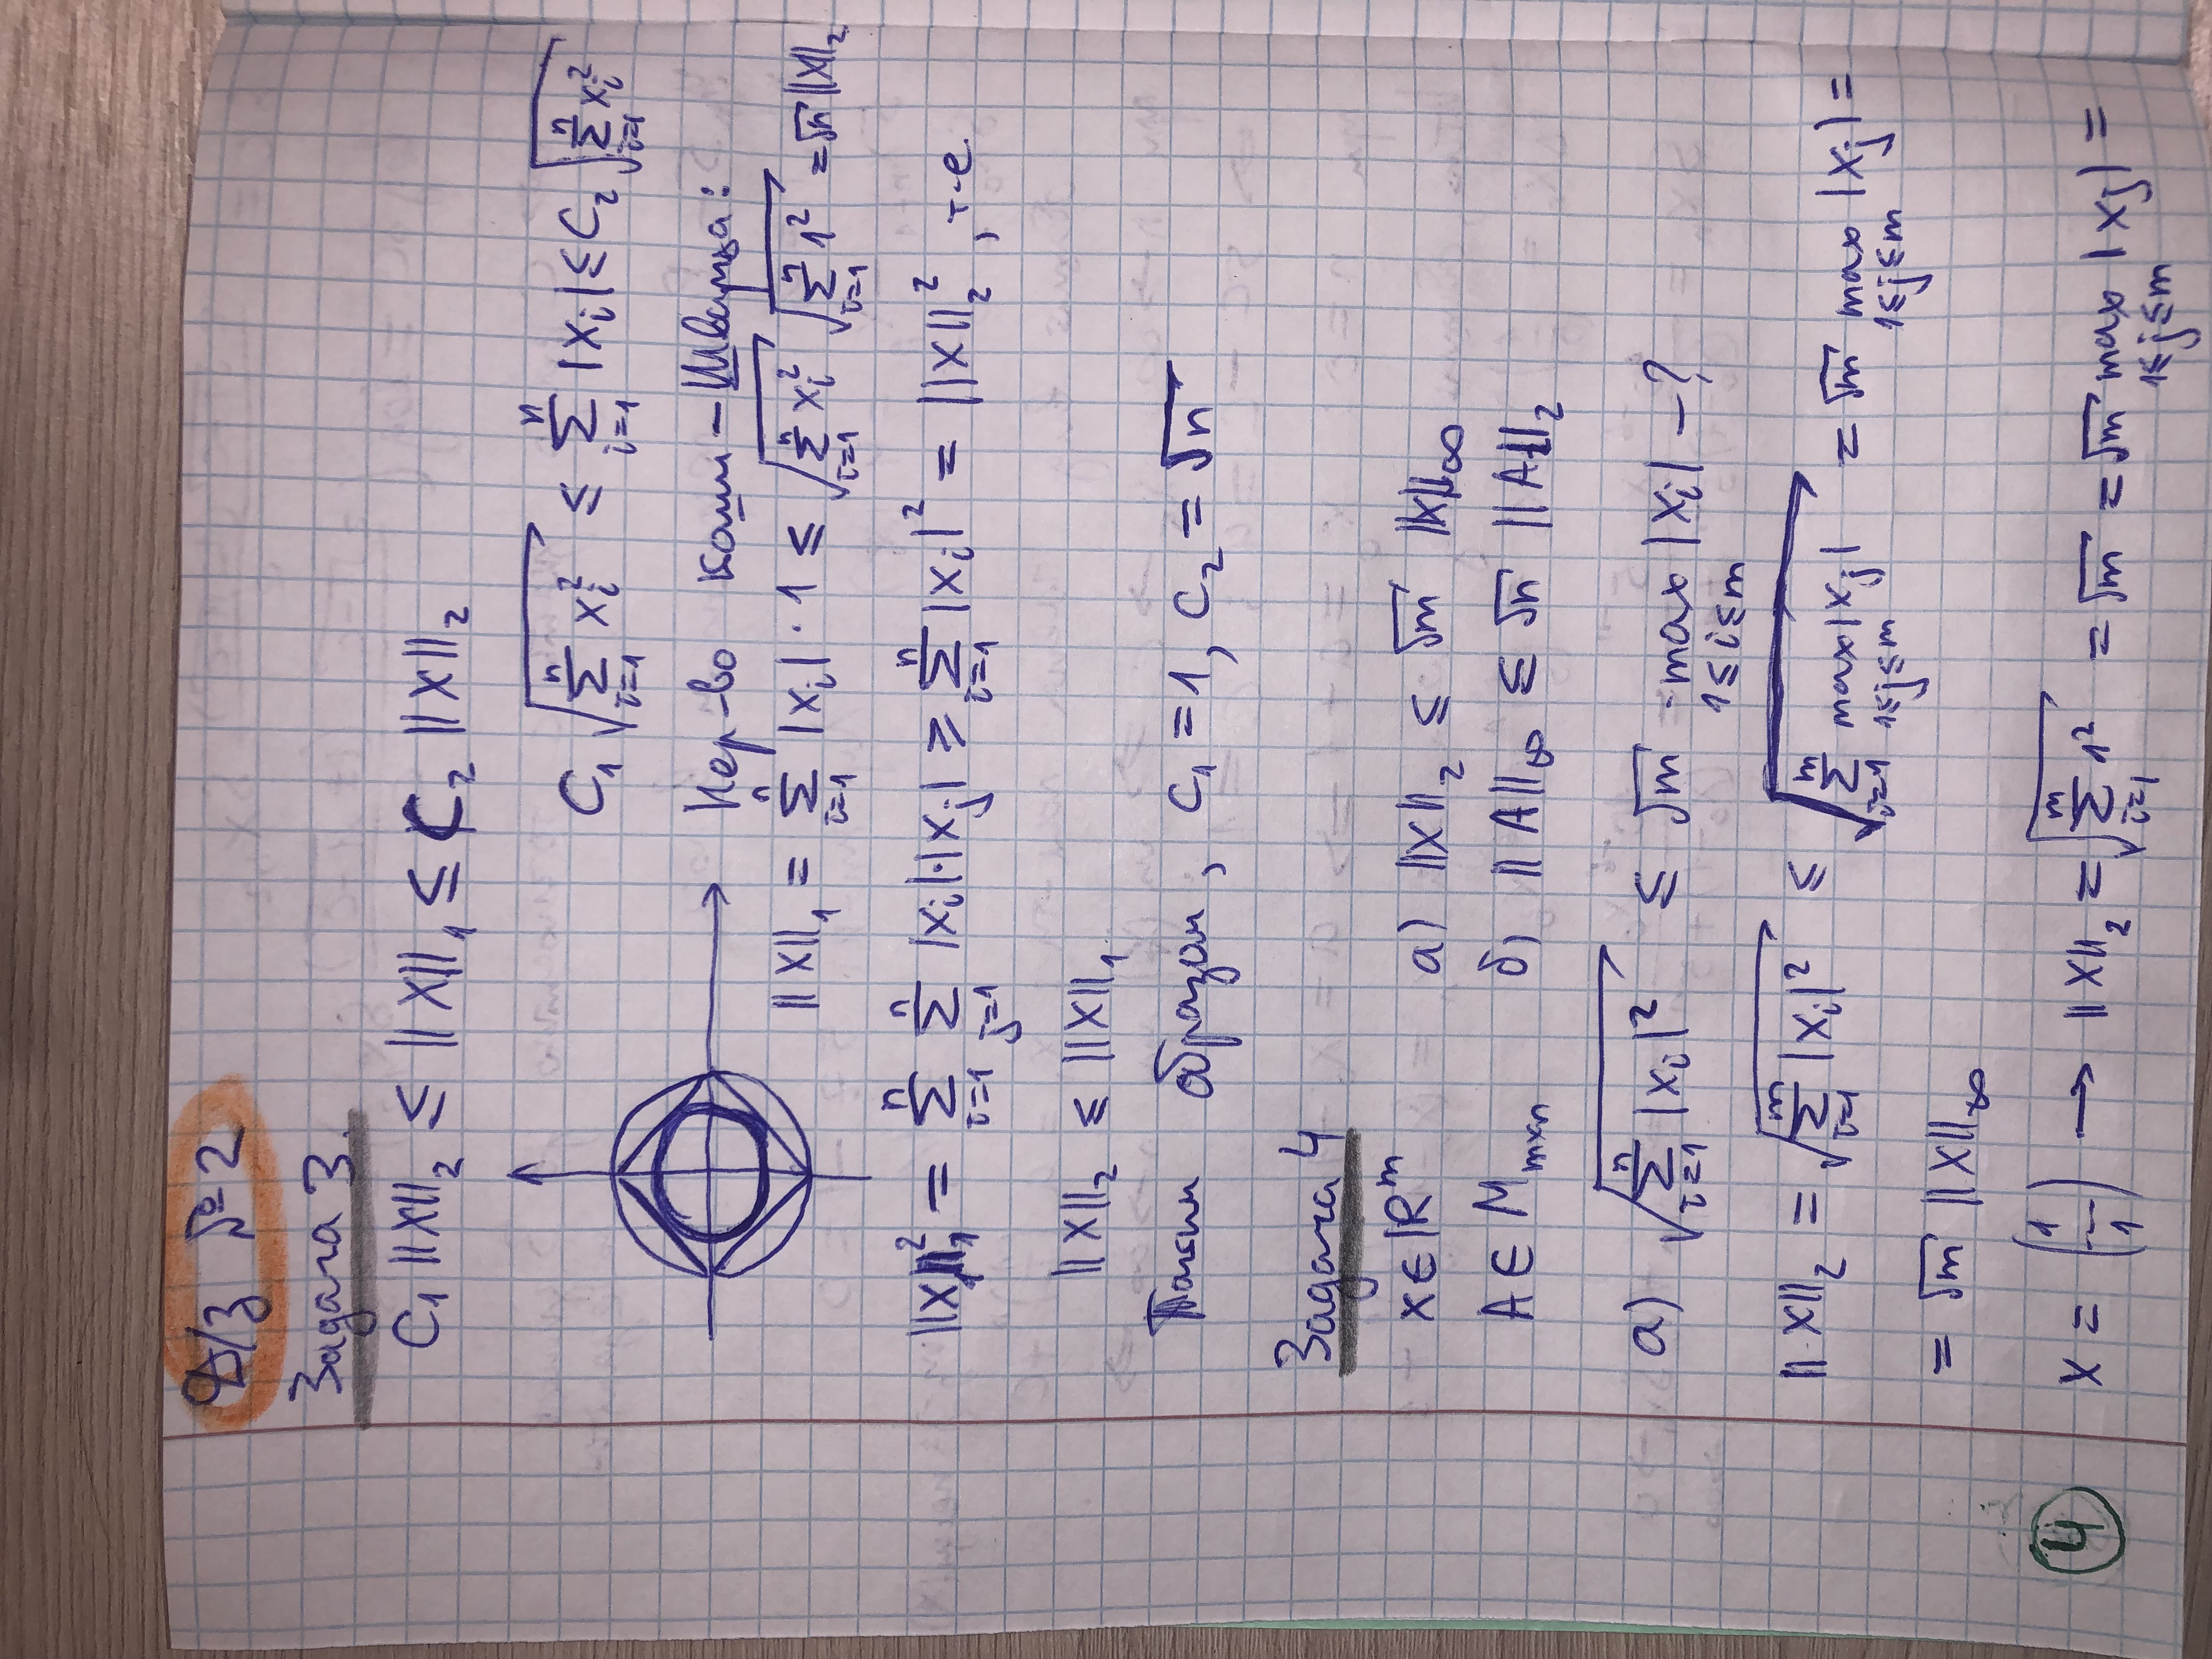 Д/з №2
Задача 3.
C₁ ||X||₂ ≤ ||X||₁ ≤ C₂ ||X||₂
C₁ √(∑_{i=1}^{n} x_i²) ≤ ∑_{i=1}^{n} |x_i| ≤ C₂ √(∑_{i=1}^{n} x_i²)
Нер-во Коши - Шварца:
||X||₁ = ∑_{i=1}^{n} |x_i| · 1 ≤ √(∑_{i=1}^{n} x_i²) √(∑_{i=1}^{n} 1²) = √n ||X||₂
||X||₁² = ∑_{i=1}^{n} ∑_{j=1}^{n} |x_i|·|x_j| ≥ ∑_{i=1}^{n} |x_i|² = ||X||₂², т.е.
||X||₂ ≤ ||X||₁
Таким образом, C₁ = 1, C₂ = √n
Задача 4
x ∈ ℝ^m а) ||X||₂ ≤ √m ||X||_∞
A ∈ M_{m×n} б) ||A||_∞ ≤ √n ||A||₂
а) √(∑_{i=1}^{n} |x_i|²) ≤ √m · max_{1≤i≤m} |x_i| - ?
||X||₂ = √(∑_{i=1}^{m} |x_i|²) ≤ √(∑_{i=1}^{m} max_{1≤j≤m} |x_j|) = √m max_{1≤j≤m} |x_j| =
= √m ||X||_∞
4
X = (1 ... 1) → ||X||₂ = √(∑_{i=1}^{m} 1²) = √m = √m max_{1≤j≤m} |x_j| =